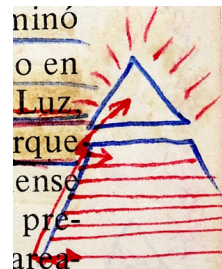 minó
o en
Luz,
rque
ense
pre-
area-